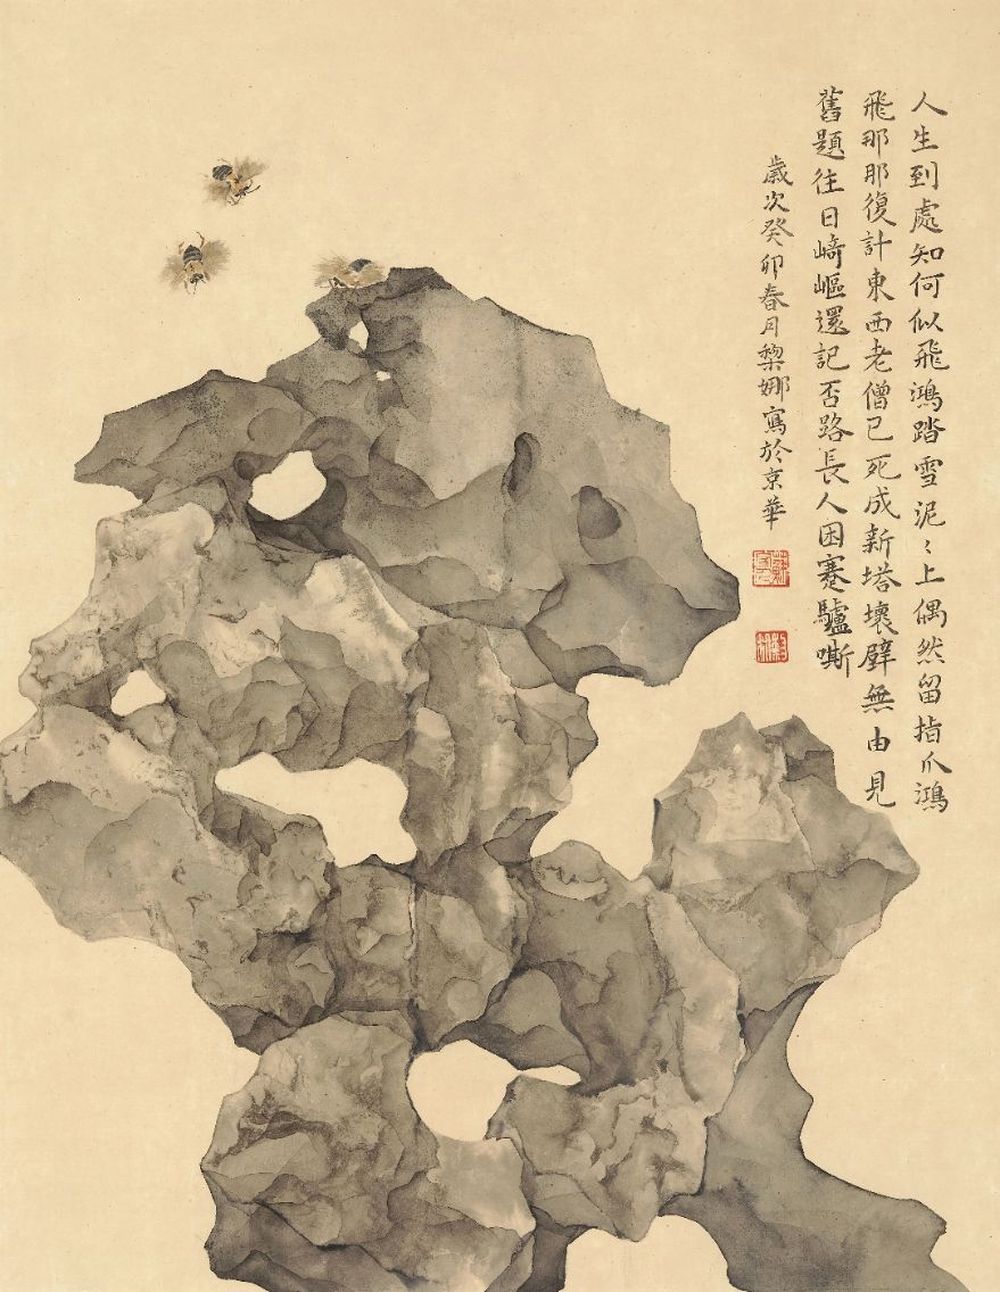 人生到處知何似飛鴻踏雪泥〻上偶然留指爪鴻
飛那那復計東西老僧已死成新塔壞壁無由見
舊題往日崎嶇還記否路長人困蹇驢嘶
歲次癸卯春月黎娜寫於京華